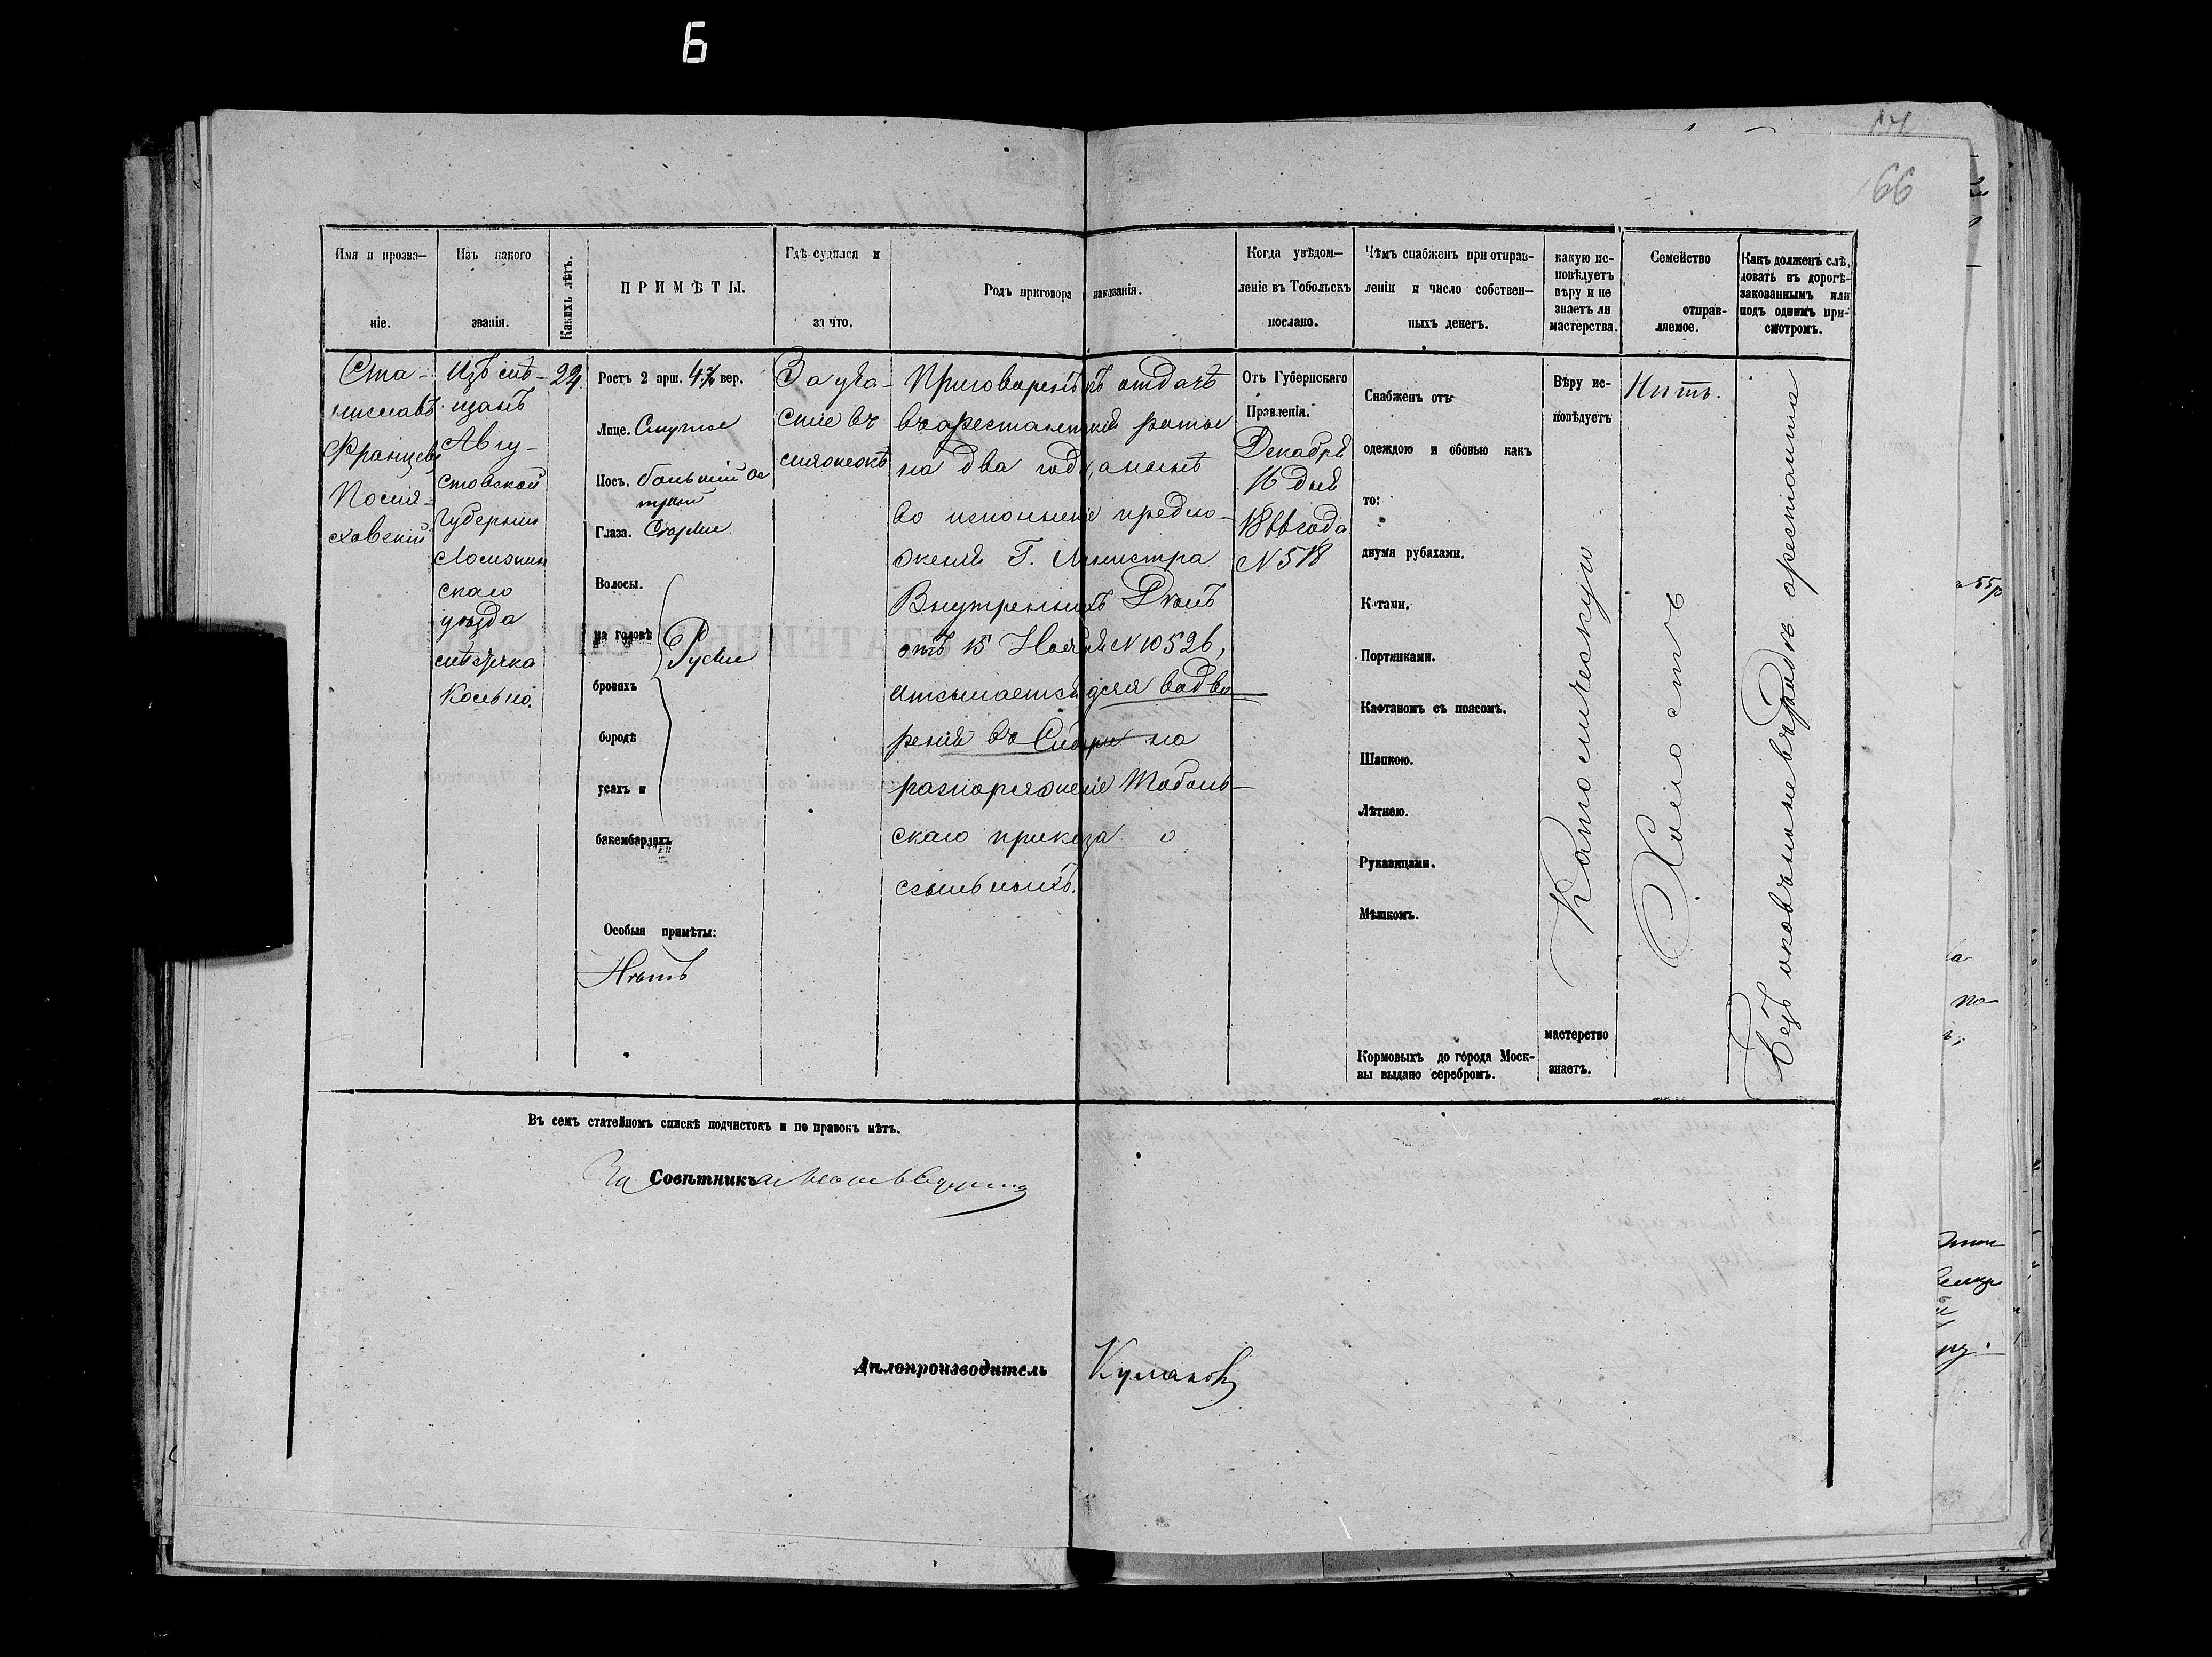 Б
66
Имя и прозва-
ніе.
Изъ какого
званія.
Какихъ лѣтъ.
ПРИМѢТЫ.
Гдѣ судился и
за что.
Родъ приговора и наказанія.
Когда увѣдом-
леніе въ Тобольскъ
послано.
Чѣмъ снабженъ при отправ-
леніи и число собствен-
ныхъ денегъ.
какую ис-
повѣдуетъ
вѣру и не
знаетъ ли
мастерства.
Семейство
отправ-
ляемое.
Какъ долженъ слѣ-
довать въ дорогѣ-
закованнымъ или
подъ однимъ при-
смотромъ.
Ста-
ниславъ
Францевъ
Изъ мѣ-
щанъ
Авгу-
стовской
Губерніи
Ломжин
скаго
уѣзда
мѣстечка
Кольно.
22
Ростъ 2 арш. 4 вер.
Лице. Смуглое
Носъ. большій ос
трый
Глаза. Сѣрые
Волосы.
на головѣ
Русые
бровяхъ
бородѣ
усахъ и
бакембардахъ
Особыя примѣты:
Нѣтъ
За уча-
стіе въ
мятежѣ
Приговоренъ къ отдачѣ
въ арестантскія роты
на два года, а нынѣ
во исполненіе предло-
женія Г. Министра
Внутреннихъ Дѣлъ
отъ 15 Ноября N 10526,
отсылается для водво
ренія въ Сибири на
распоряженіе Тоболь-
скаго приказа о
ссыльныхъ.
Отъ Губернскаго
Правленія.
Декабря
16 дня
1866 года
N 518
Снабженъ отъ
одеждою и обовью какъ
то:
двумя рубахами.
Котами.
Портянками.
Кафтаномъ съ поясомъ.
Шапкою.
Лѣтнею.
Рукавицами.
Мѣшкомъ.
Кормовыхъ до города Моск-
вы выдано серебромъ.
Вѣру ис-
повѣдуетъ
Католическую
мастерство
знаетъ.
Нѣтъ.
Холостъ
Безъ оковъ но не въ разрядѣ арестанта
Въ семъ статейномъ спискѣ подчистокъ и по правокъ нѣтъ.
За Совѣтника
Дѣлопроизводитель Кулаковъ